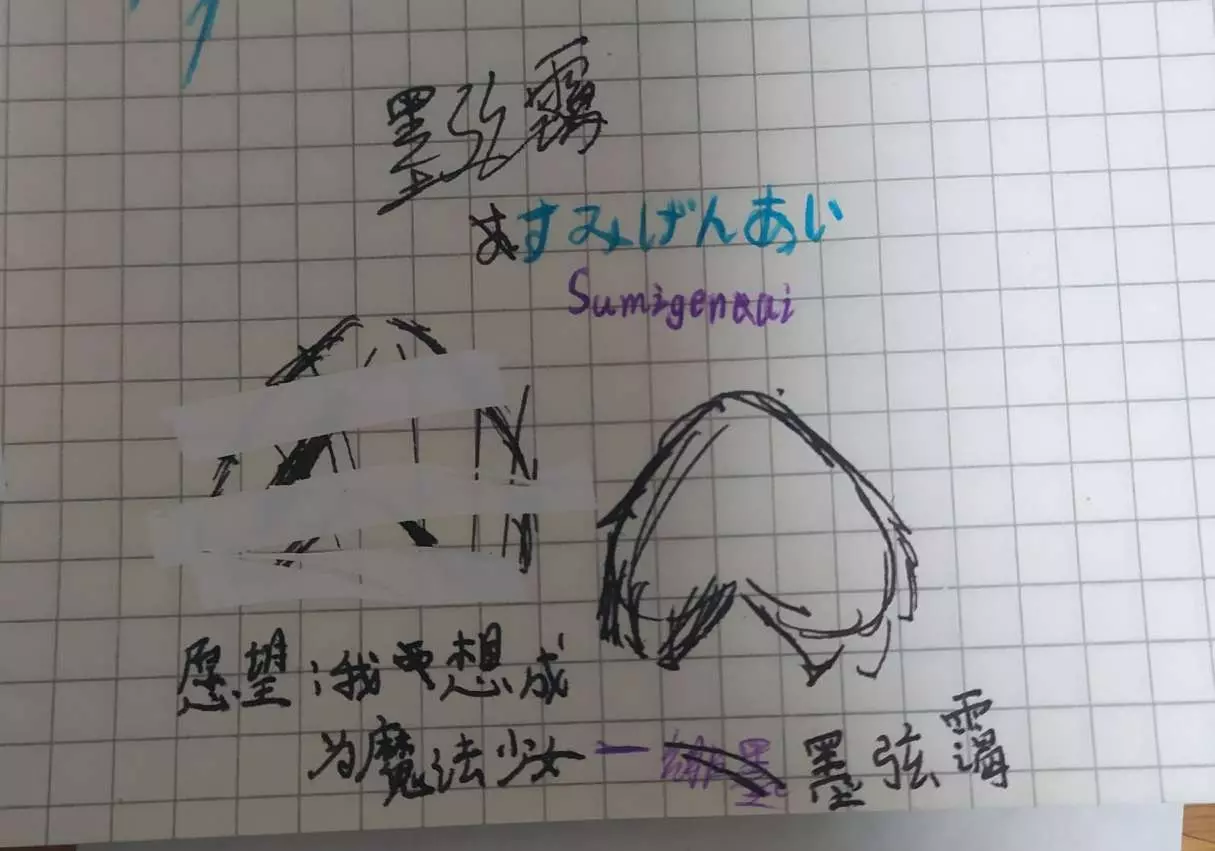 墨弦霭
あすみげんあい
Sumigenxai
愿望：我要想成
为魔法少女—墨弦霭